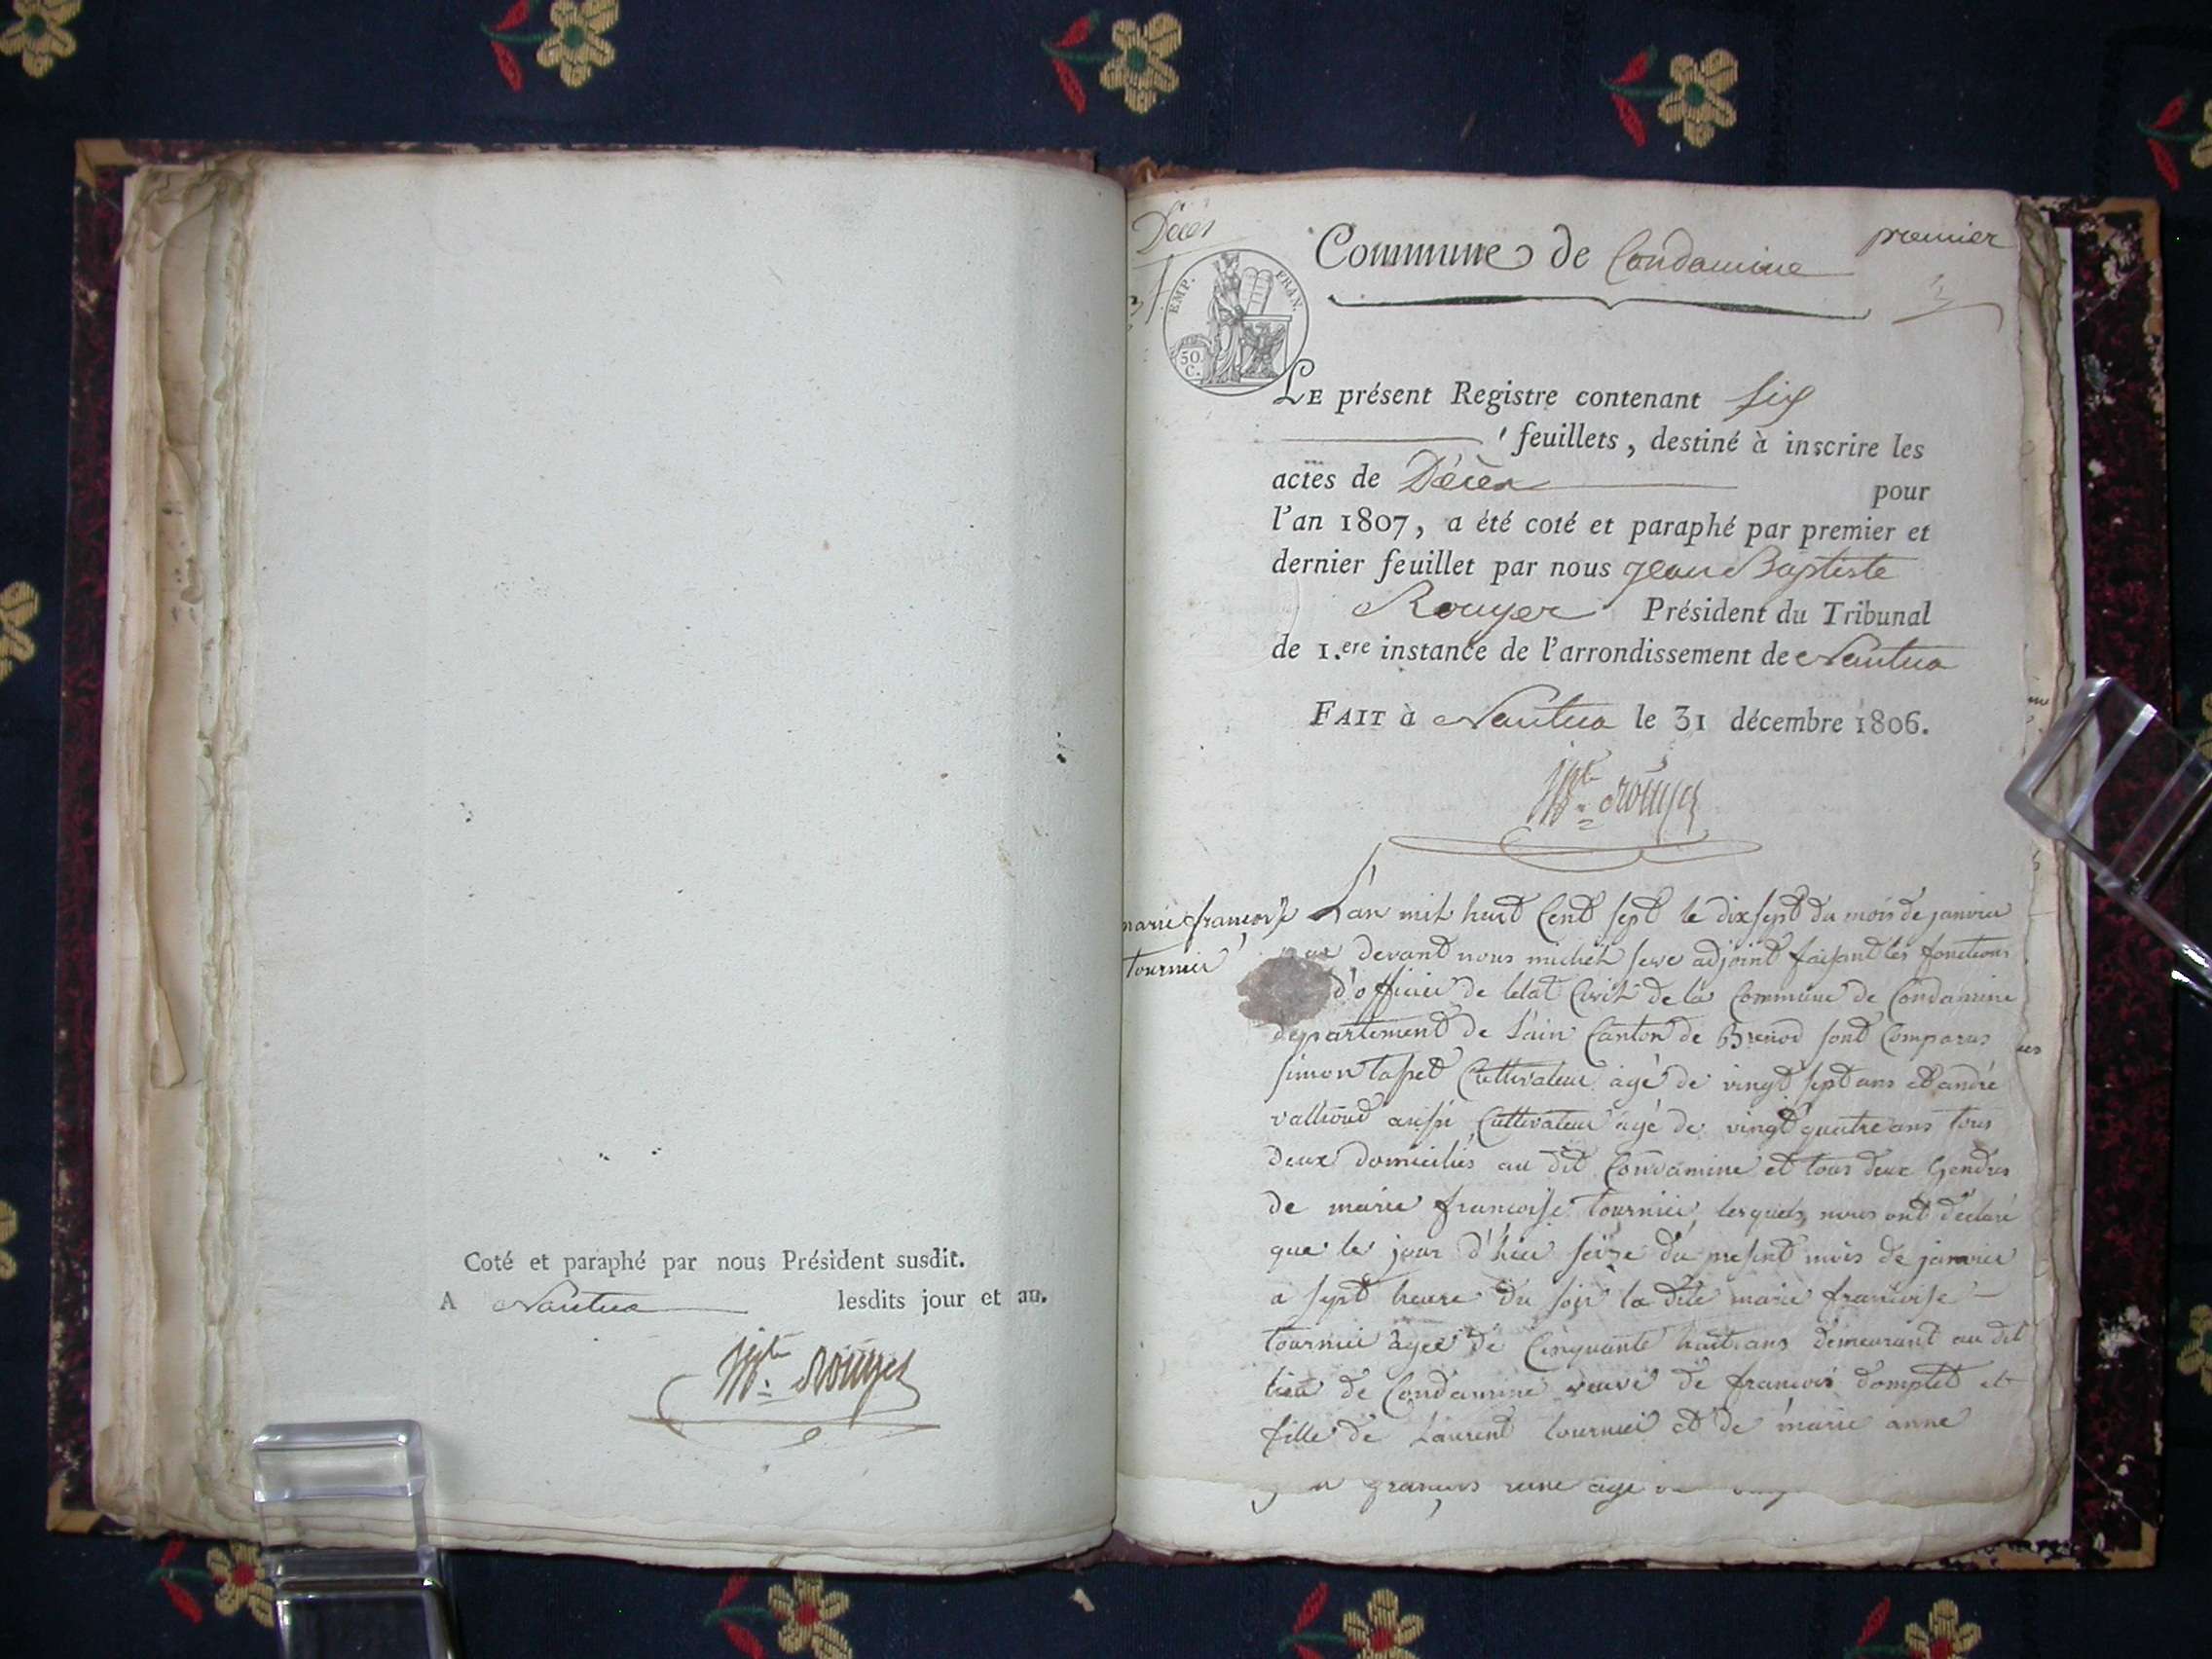 Coté et paraphé par nous Président susdit.
A Nantua lesdits jour et an.
Jn Bte. Rouyer
Décès
premier
Commune de Condamine
EMP. FRAN.
50. C.
LE présent Registre contenant six
feuillets, destiné à inscrire les
actes de Décès pour
l'an 1807, a été coté et paraphé par premier et
dernier feuillet par nous Jean Baptiste
Rouyer Président du Tribunal
de 1.ere instance de l'arrondissement de Nantua
FAIT à Nantua le 31 décembre 1806.
Jn Bte. Rouyer
marie françoise
tournier
L'an mil huit Cent sept le dix sept du mois de janvier
par devant nous michel adjoint faisant les fonctions
d'officier de letat Civil de la Commune de Condamine
département de Lain Canton de Brenod sont Comparus
simon tapet Cultivateur âgé de vingt sept ans et andré
vallioud aussi Cultivateur âgé de vingt quatre ans tous
deux domiciliés au dit Condamine et tous deux Gendres
de marie francoise tournier lesquels nous ont déclaré
que le jour d'hier seize du present mois de janvier
a sept heure du soir la dite marie francoise
tournier âgée de Cinquante huit ans demeurant au dit
lieu de Condamine veuve de francois domplet et
fille de Laurent tournier et de marie anne
francois âgé